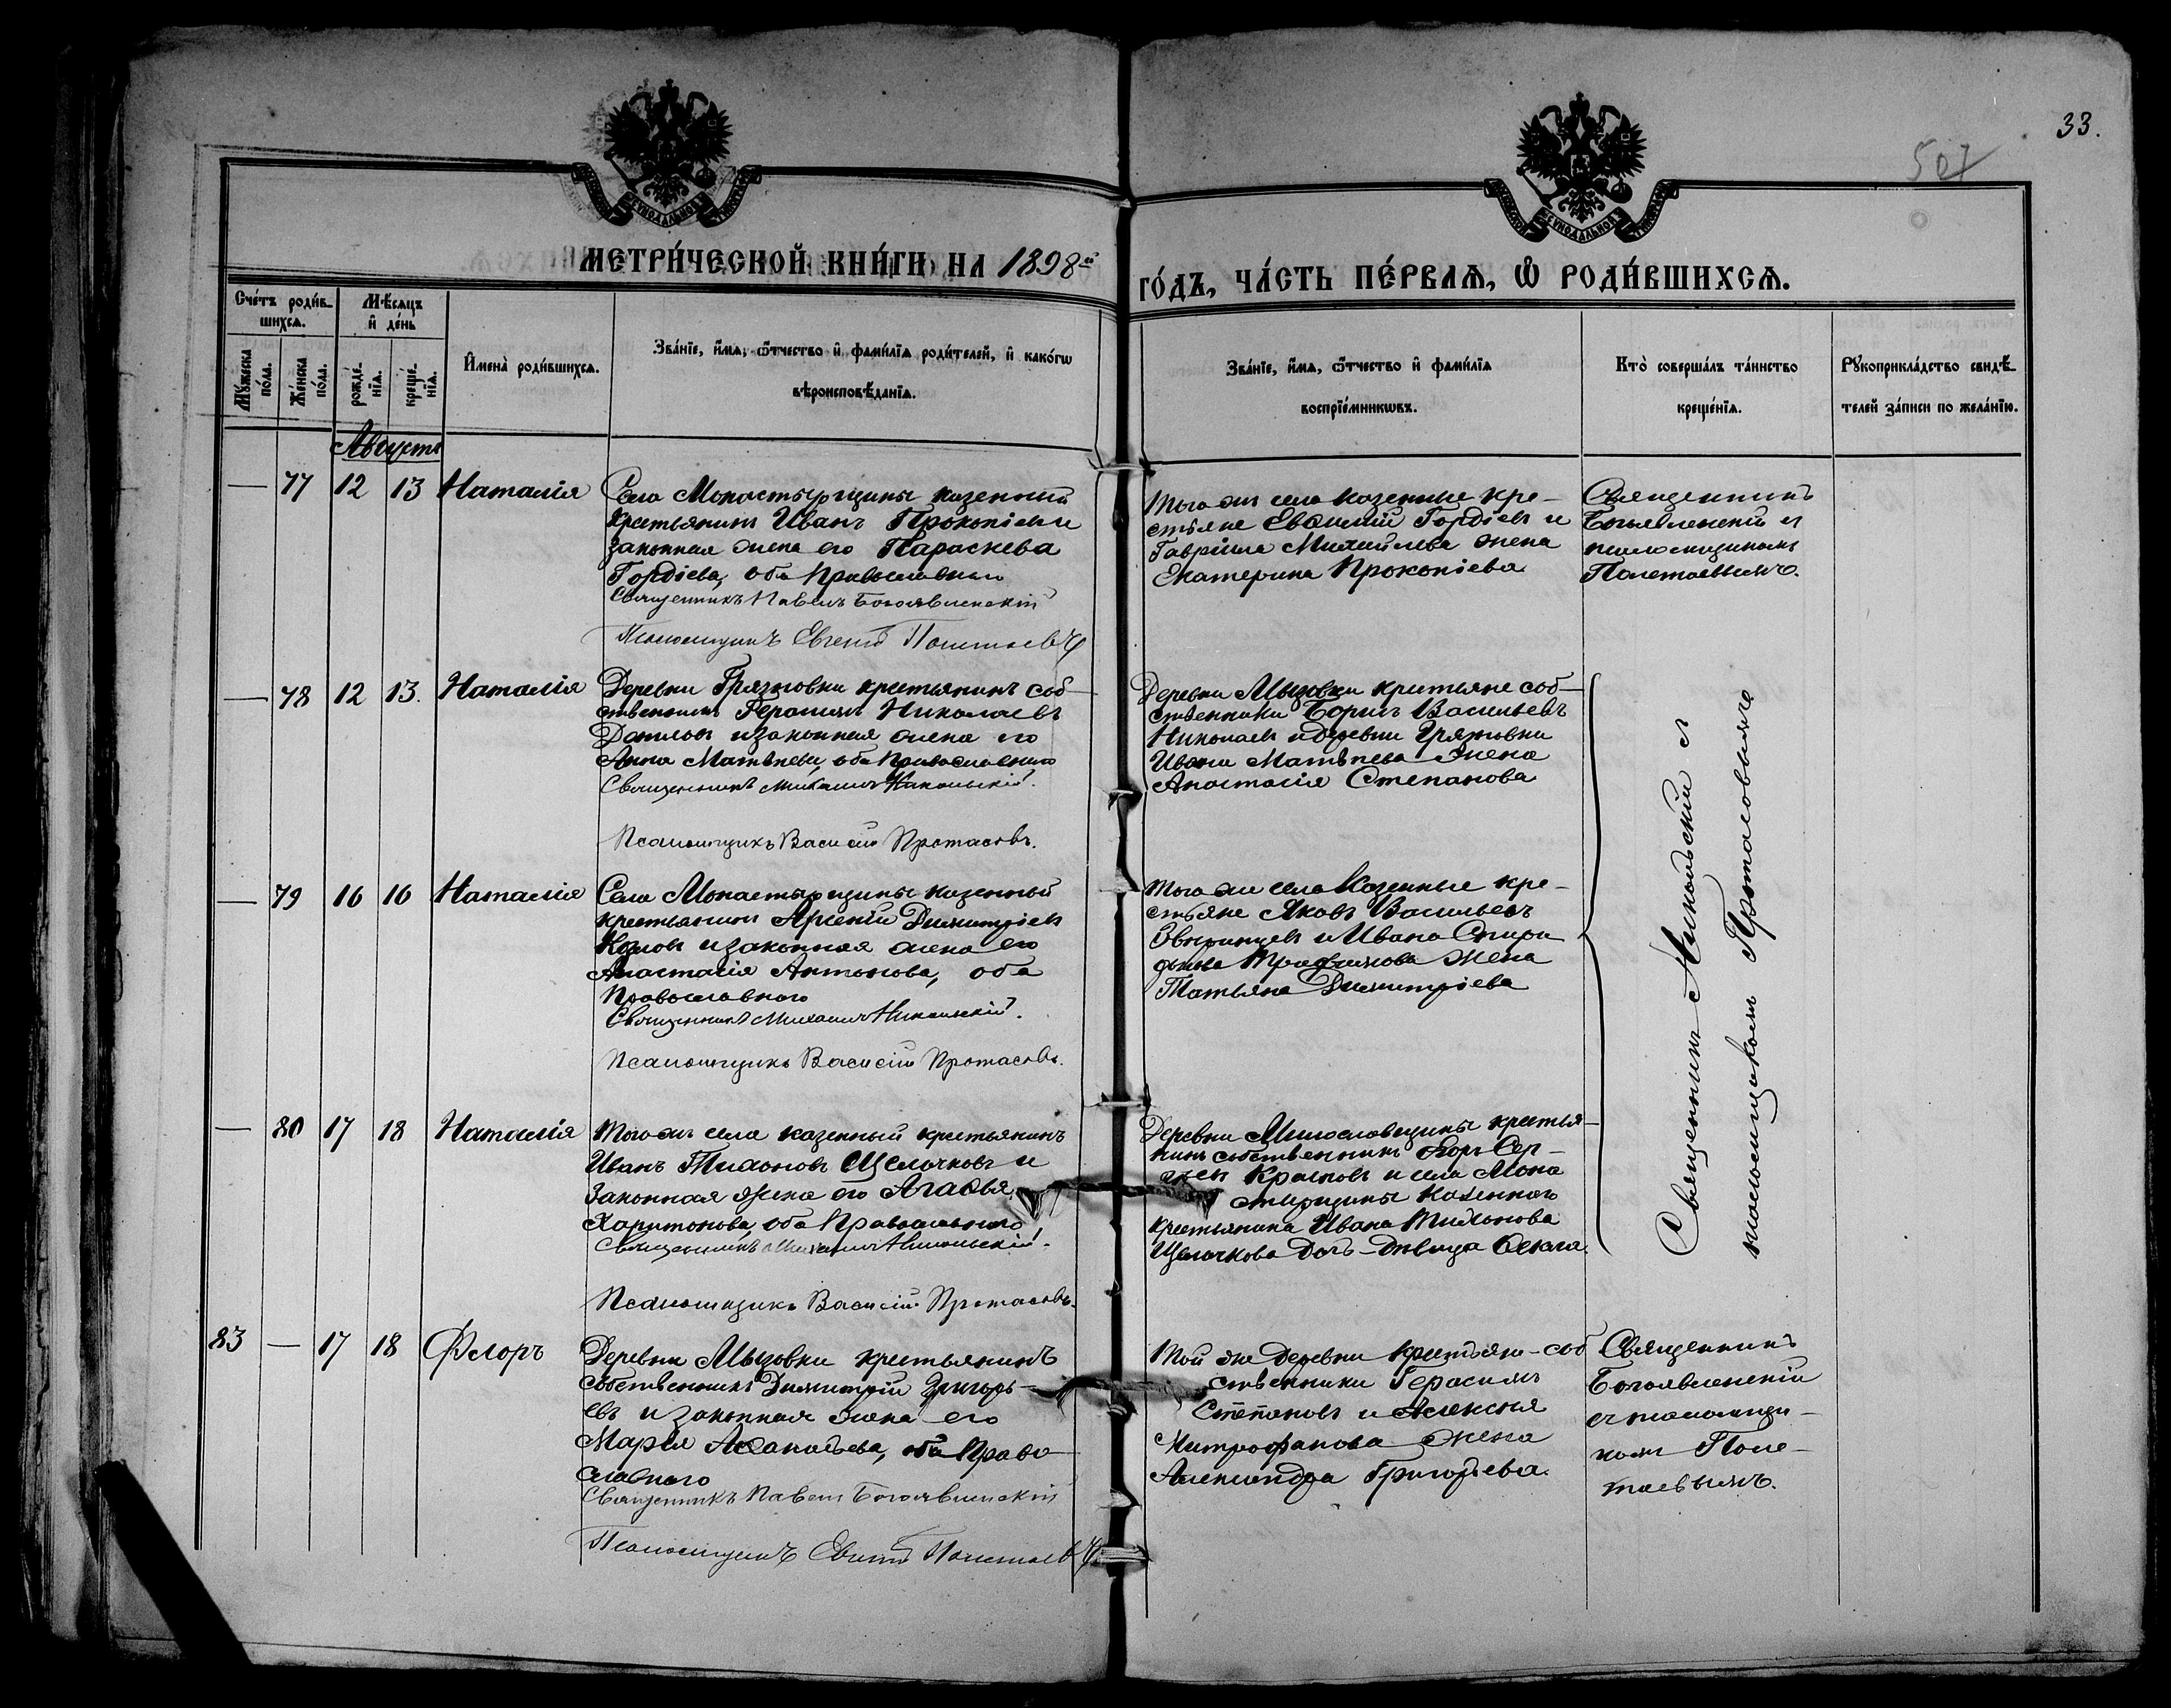 33.
507
МЕТРИ́ЧЕСКОЙ КНИ́ГИ НА 1898й
ГО́ДЪ, ЧА́СТЬ ПЕ́РВАѦ, Ѽ РОДИ́ВШИХСѦ.
Сче́тъ роди́в-
шихсѧ.
Мѣ́сѧцъ
и҆ де́нь
Мꙋ́жеска
по́ла.
Же́нска
по́ла.
рожде́-
нїѧ.
креще́-
нїѧ.
И҆мена̀ роди́вшихсѧ.
Зва́нїе, и҆́мѧ, ѻ҆́тчество и҆ фами́лїѧ роди́телей, и҆ како́гѡ
вѣроисповѣ́данїѧ.
Зва́нїе, и҆́мѧ, ѻ҆́тчество и҆ фами́лїѧ
воспрїе́мникѡвъ.
Кто̀ соверша́лъ та́инство
креще́нїѧ.
Рꙋкоприкла́дство свидѣ́-
телей за́писи по жела́нїю.
Августъ
— 77 12 13 Наталія
Села Монастырщины казенный
крестьянинъ Иванъ Прокопіевъ и
законная жена его Параскева
Гордіева, оба Православнаго
Священникъ Павелъ Богоявленскій
Псаломщикъ Евгеній Полетаевъ
Того же села казенные кре-
стьяне Евѳимій Гордіевъ и
Гавріила Михайлева жена
Екатерина Прокопіева
Священникъ
Богоявленскій съ
псаломщикомъ
Полетаевымъ.
— 78 12 13. Наталія
Деревни Грязновки крестьянинъ соб-
ственникъ Герасимъ Николаевъ
и законная жена его
Анна Матвѣева, оба Православнаго
Священникъ Михаилъ Никольскій.
Псаломщикъ Василій Протасовъ.
Деревни Мызовки крестьяне соб-
ственники Борисъ Васильевъ
Николаевъ и деревни Грязновки
Ивана Матвѣева жена
Анастасія Степанова
Священникъ Никольскій съ
псаломщикомъ Протасовымъ
— 79 16 16 Наталія
Села Монастырщины казенный
крестьянинъ Арсеній Димитріевъ
и законная жена его
Анастасія Антонова, оба
Православнаго
Священникъ Михаилъ Никольскій.
Псаломщикъ Василій Протасовъ.
Того же села Казенные кре-
стьяне Яковъ Васильевъ
и Ивана Спири
донова Трофимова жена
Татьяна Димитріева
— 80 17 18 Наталія
Того же села казенный крестьянинъ
Иванъ Тихоновъ Щелочковъ и
Законная жена его Агаѳья
Харитонова, оба Православнаго
Священникъ Михаилъ Никольскій.
Псаломщикъ Василій Протасовъ.
Деревни Милославщины крестья-
нинъ собственникъ Егоръ Сер-
гѣевъ Красновъ и села Мона
стырщины казеннаго
крестьянина Ивана Тихонова
Щелочкова дочь-дѣвица Ѳекла.
83 — 17 18 Флоръ
Деревни Мызовки крестьянинъ
собственникъ Димитрій Григорь-
евъ и законная жена его
Марѳа Аѳанасьева, оба Право-
славнаго
Священникъ Павелъ Богоявленскій
Псаломщикъ Евгеній Полетаевъ
Той же деревни крестьяне-соб
ственники Герасимъ
Степановъ и Алексѣя
Митрофанова жена
Александра Григорьева.
Священникъ
Богоявленскій
съ псаломщи-
комъ Поле-
таевымъ.